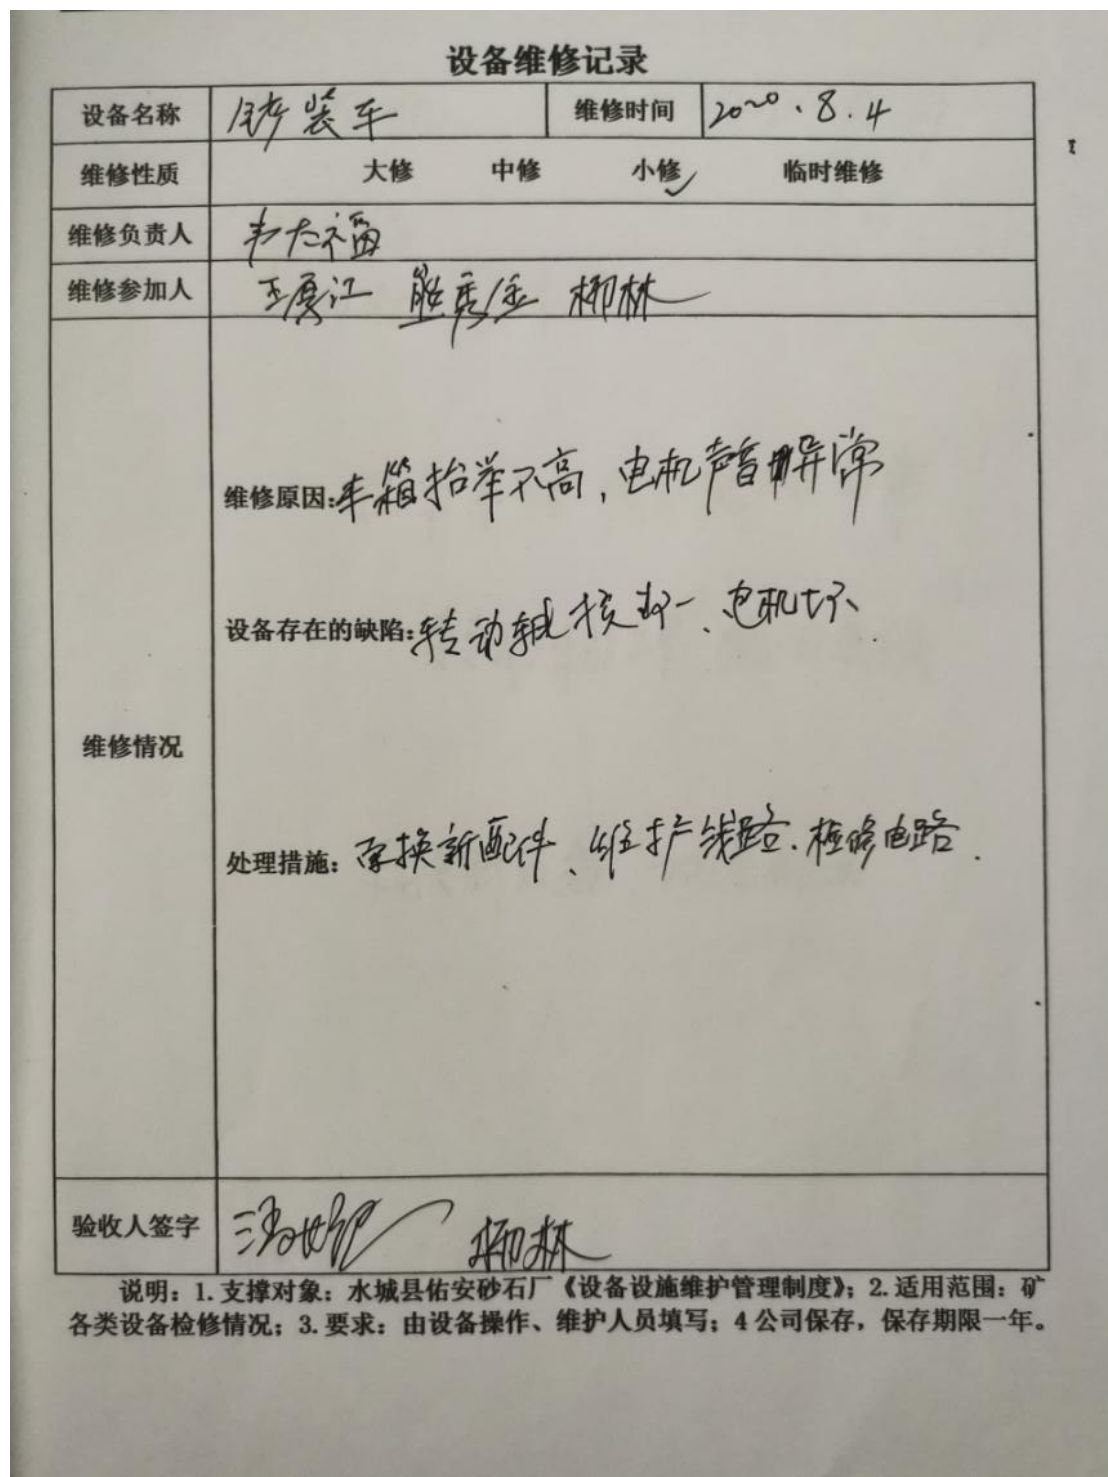 设备维修记录
设备名称 铲装车 维修时间 2020.8.4
维修性质 大修 中修 小修✓ 临时维修
维修负责人 韦大福
维修参加人 王厚江 熊秀全 柳林
维修原因:车箱抬举不高,电机声音异常
设备存在的缺陷:转动轴损坏、电机坏.
维修情况
处理措施:更换新配件、维护线路.检修电路.
验收人签字 柳林
说明:1.支撑对象:水城县佑安砂石厂《设备设施维护管理制度》;2.适用范围:矿
各类设备检修情况;3.要求:由设备操作、维护人员填写;4公司保存,保存期限一年。